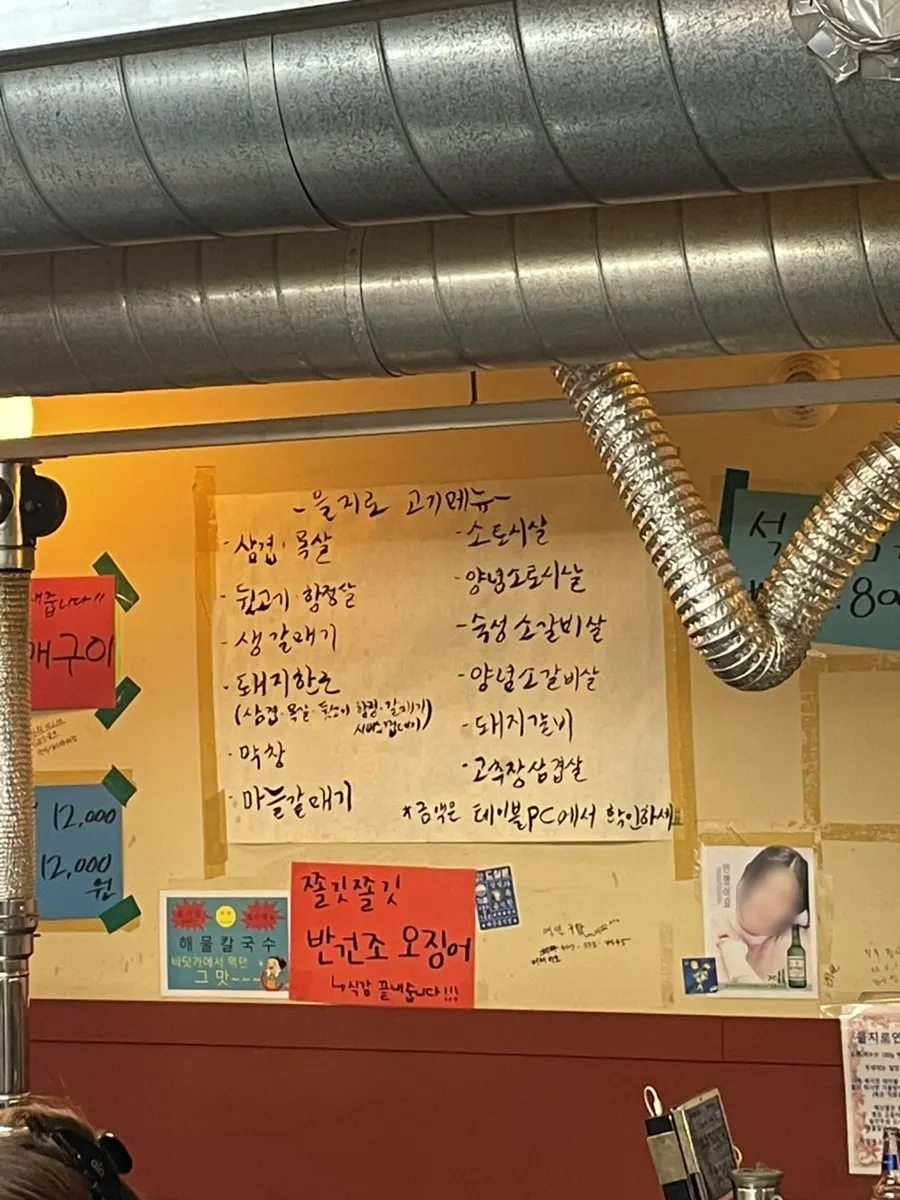 -을지로 고기메뉴-
- 삼겹·목살
- 뒷고기·항정살
- 생갈매기
- 돼지한근
(삼겹·목살·뒷고기·항정·갈매기
서비스껍데기)
- 막창
- 마늘갈매기
- 소토시살
- 양념소토시살
- 숙성소갈비살
- 양념소갈비살
- 돼지갈비
- 고추장삼겹살
*금액은 테이블PC에서 확인하세
줍니다!!
개구이
12,000
12,000
원
석
해물칼국수
바닷가에서 먹던
그 맛~~~
쫄깃쫄깃
반건조 오징어
↳식감 끝내줍니다!!!
을지로연